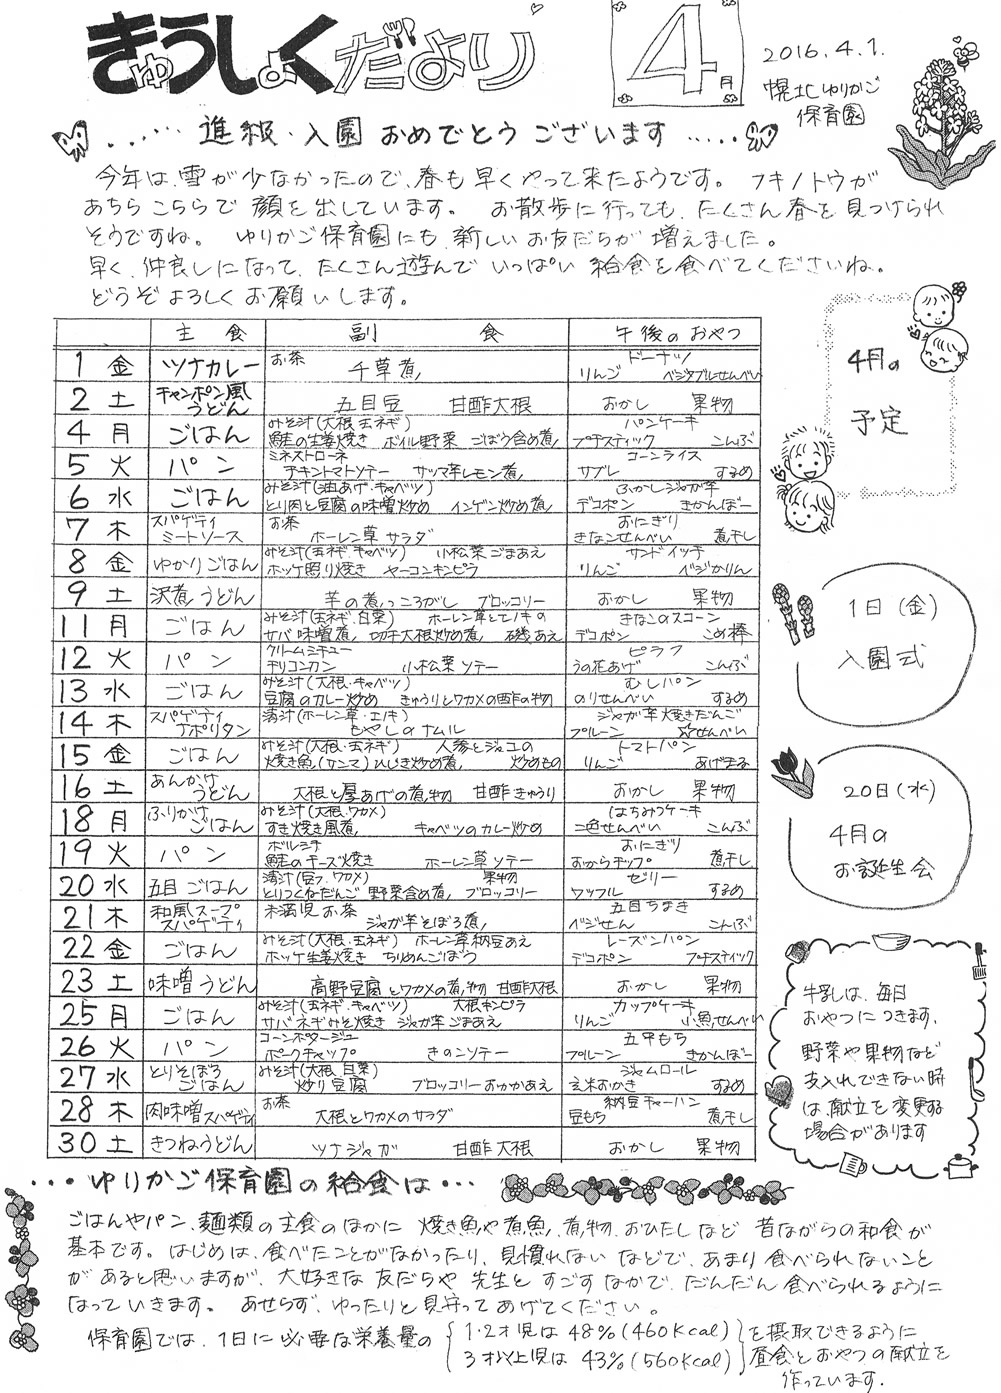 きゅうしょくだより
4月
2016.4.1.
幌北ゆりかご
保育園
・・・・・ 進級・入園 おめでとう ございます ・・・・・
今年は、雪が少なかったので、春も早くやって来たようです。 フキノトウが
あちらこちらで顔を出しています。 お散歩に行っても、たくさん春を見つけられ
そうですね。 ゆりかご保育園にも、新しいお友だちが増えました。
早く、仲良しになって、たくさん遊んでいっぱい給食を食べてくださいね。
どうぞよろしくお願いします。
主食 副食 午後のおやつ
1 金 ツナカレー お茶 千草煮 ドーナツ りんご ベジタブルせんべい
2 土 チャンポン風うどん 五目豆 甘酢大根 おかし 果物
4 月 ごはん みそ汁(大根 玉ネギ) 鮭の生姜焼き ボイル野菜 ごぼう含め煮 パンケーキ プチスティック こんぶ
5 火 パン ミネストローネ チキントマトソテー サツマ芋レモン煮 コーンライス サブレ するめ
6 水 ごはん みそ汁(油あげ・キャベツ) とり肉と豆腐の味噌炒め インゲン炒め煮 ふかしジャガ芋 デコポン きかんぼー
7 木 スパゲティミートソース お茶 ホーレン草サラダ おにぎり きなこせんべい 煮干し
8 金 ゆかりごはん みそ汁(玉ネギ・キャベツ) 小松菜ごまあえ ホッケ照り焼き ヤーコンキンピラ サンドイッチ りんご ベジかりん
9 土 沢煮うどん 芋の煮っころがし ブロッコリー おかし 果物
11 月 ごはん みそ汁(玉ネギ・白菜) ホーレン草とエノキの サバ味噌煮 切干大根炒め煮 磯あえ きなこのスコーン デコポン こめ棒
12 火 パン クリームシチュー チリコンカン 小松菜ソテー ピラフ うの花あげ こんぶ
13 水 ごはん みそ汁(大根・キャベツ) 豆腐のカレー炒め きゅうりとワカメの酢の物 むしパン のりせんべい するめ
14 木 スパゲティナポリタン 清汁(ホーレン草・エノキ) もやしのナムル ジャガ芋焼きだんご プルーン ☆せんべい
15 金 ごはん みそ汁(大根・玉ネギ) 人参とジャコの 焼き魚(サンマ) ひじき炒め煮 炒めもの トマトパン りんご あげ玉子
16 土 あんかけうどん 大根と厚あげの煮物 甘酢きゅうり おかし 果物
18 月 ふりかけごはん みそ汁(大根・ワカメ) すき焼き風煮 キャベツのカレー炒め はちみつケーキ 二色せんべい こんぶ
19 火 パン ボルシチ 鮭のチーズ焼き ホーレン草ソテー おにぎり おからチップ 煮干し
20 水 五目ごはん 清汁(豆フ、ワカメ) 果物 とりつくねだんご 野菜含め煮 ブロッコリー ゼリー ワッフル するめ
21 木 和風スープスパゲティ 未満児お茶 ジャガ芋そぼろ煮 五目ちまき ベジせん こんぶ
22 金 ごはん みそ汁(大根・玉ネギ) ホーレン草納豆あえ ホッケ生姜焼き ちりめんごぼう レーズンパン デコポン プチスティック
23 土 味噌うどん 高野豆腐とワカメの煮物 甘酢大根 おかし 果物
25 月 ごはん みそ汁(玉ネギ・キャベツ) 大根キンピラ サバネギみそ焼き ジャガ芋ごまあえ カップケーキ りんご 小魚せんべい
26 火 パン コーンポタージュ ポークチャップ きのこソテー 五平もち プルーン きかんぼー
27 水 とりそぼろごはん みそ汁(大根 白菜) 炒り豆腐 ブロッコリーおかかあえ ジャムロール 玄米おかき するめ
28 木 肉味噌スパゲティ お茶 大根とワカメのサラダ 納豆チャーハン 豆もち 煮干し
30 土 きつねうどん ツナジャガ 甘酢大根 おかし 果物
4月の
予定
1日(金)
入園式
20日(水)
4月の
お誕生会
牛乳は、毎日
おやつにつきます。
野菜や果物など
支入れできない時
は、献立を変更する
場合があります
・・・ゆりかご保育園の給食は・・・
ごはんやパン、麺類の主食のほかに 焼き魚や煮魚、煮物、おひたしなど 昔ながらの和食が
基本です。はじめは、食べたことがなかったり、見慣れないなどで、あまり食べられないこと
があると思いますが、大好きな友だちや先生とすごすなかで、だんだん食べられるように
なっていきます。 あせらず、ゆったりと見守ってあげてください。
保育園では、1日に必要な栄養量の
1・2才児は48%(460Kcal)
3才以上児は43%(560Kcal)
を摂取できるように
昼食とおやつの献立を
作っています。